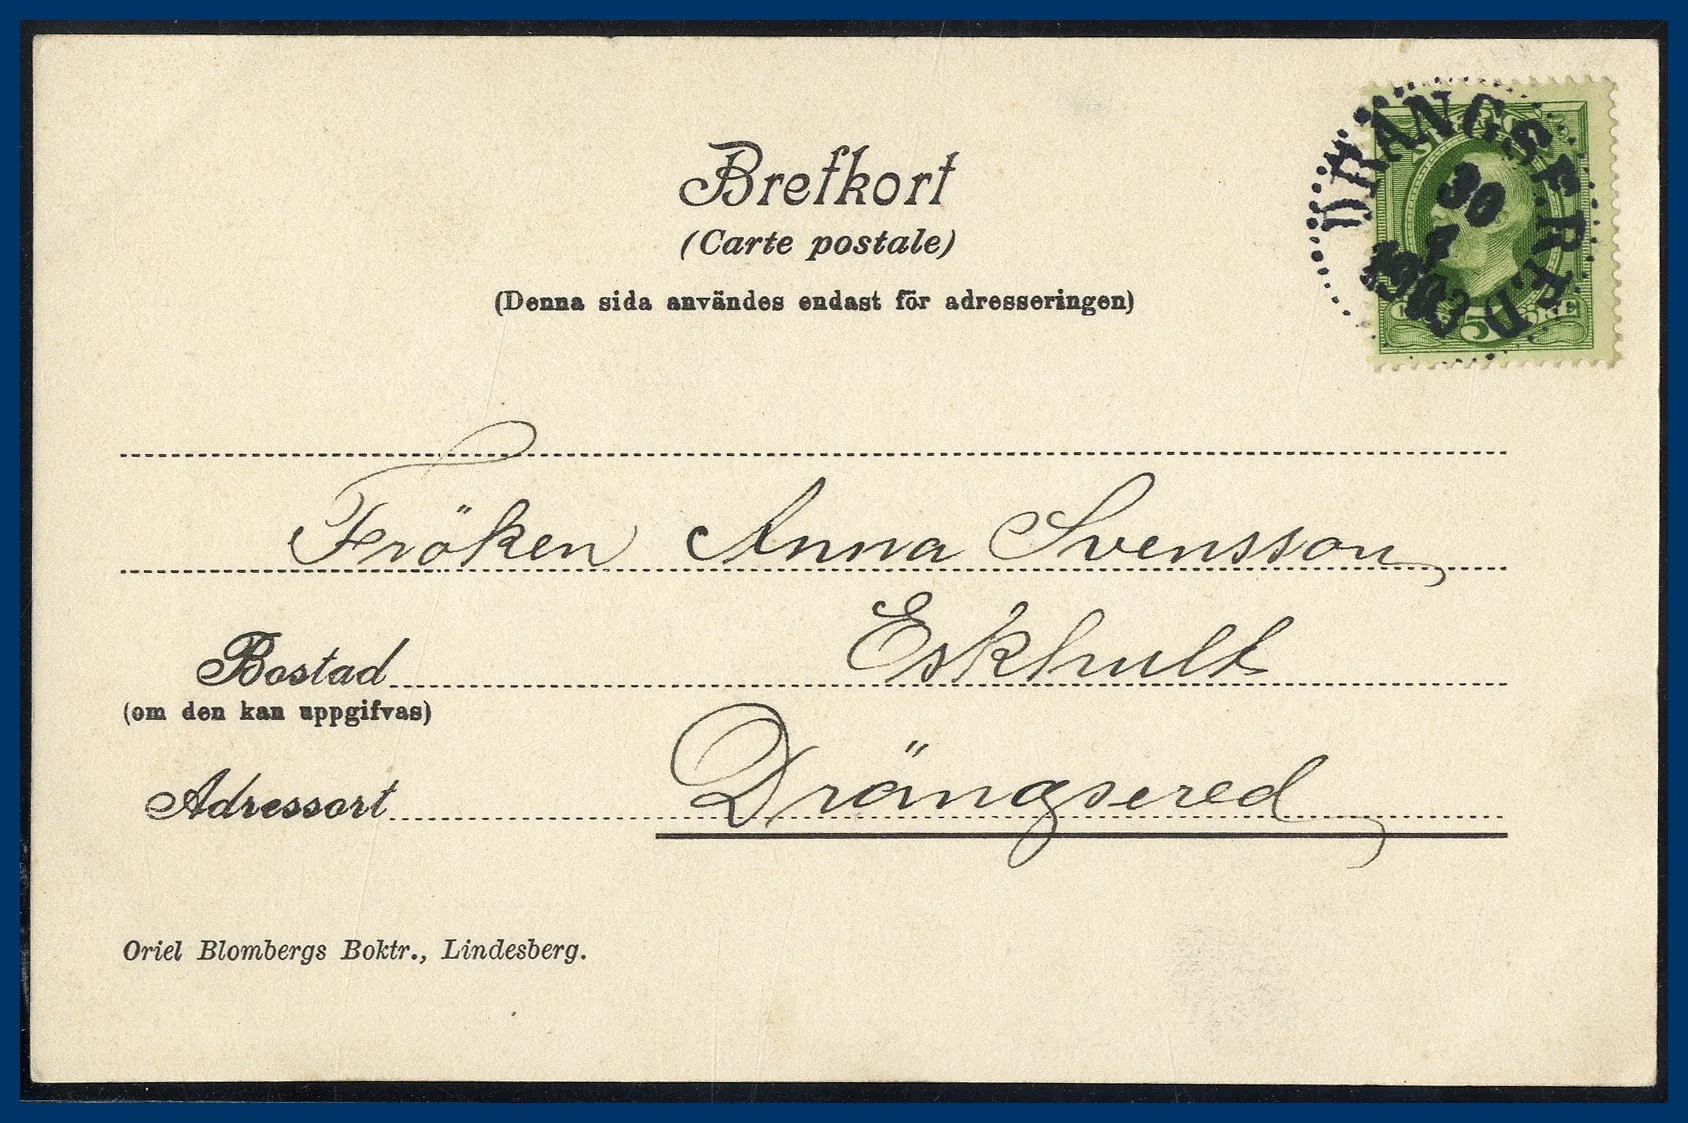 Brefkort
(Carte postale)
(Denna sida användes endast för adresseringen)
DRÄNGSERED
30
4
1903
5 ÖRE
Fröken Anna Svensson
Bostad Eskhult
(om den kan uppgifvas)
Adressort Drängsered
Oriel Blombergs Boktr., Lindesberg.